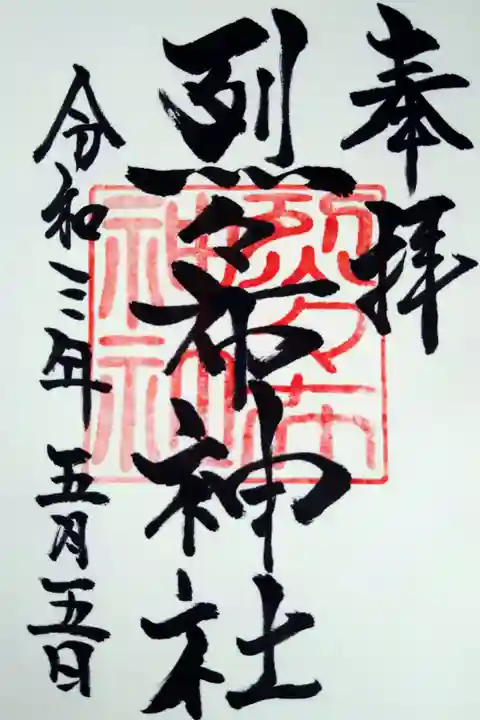 奉拝
烈々布神社
令和三年五月五日
烈々布
神社